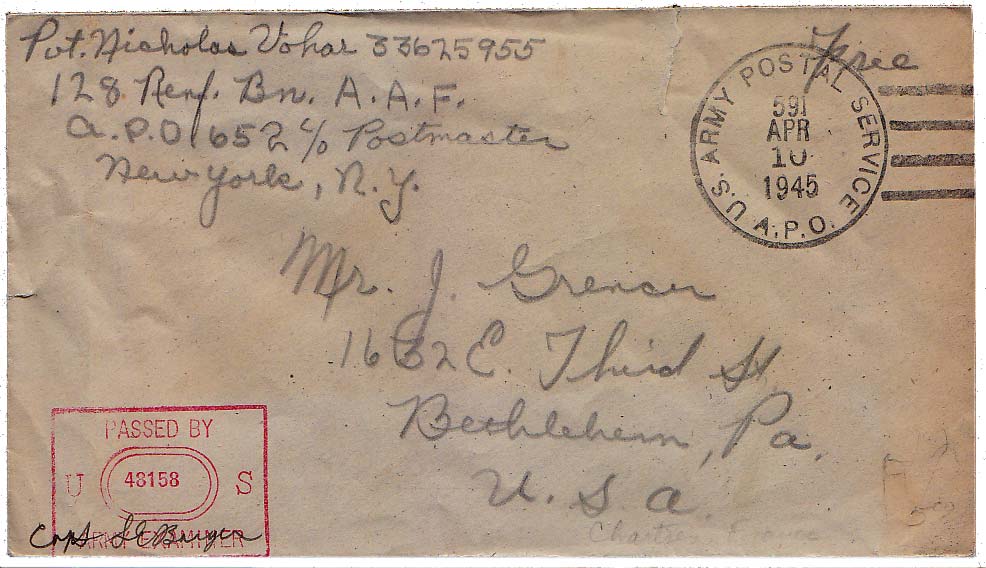 Pvt. Nicholas Vohar 33625955
128 Renf. Bn. A.A.F.
A.P.O. 652 c/o Postmaster
New York, N.Y.
Free
U.S. ARMY POSTAL SERVICE
591
APR
10
1945
A.P.O.
Mr. J. Grencer
1632 E. Third St.
Bethlehem, Pa.
U.S.A.
PASSED BY
U 48158 S
ARMY EXAMINER
Capt
Chartres, France